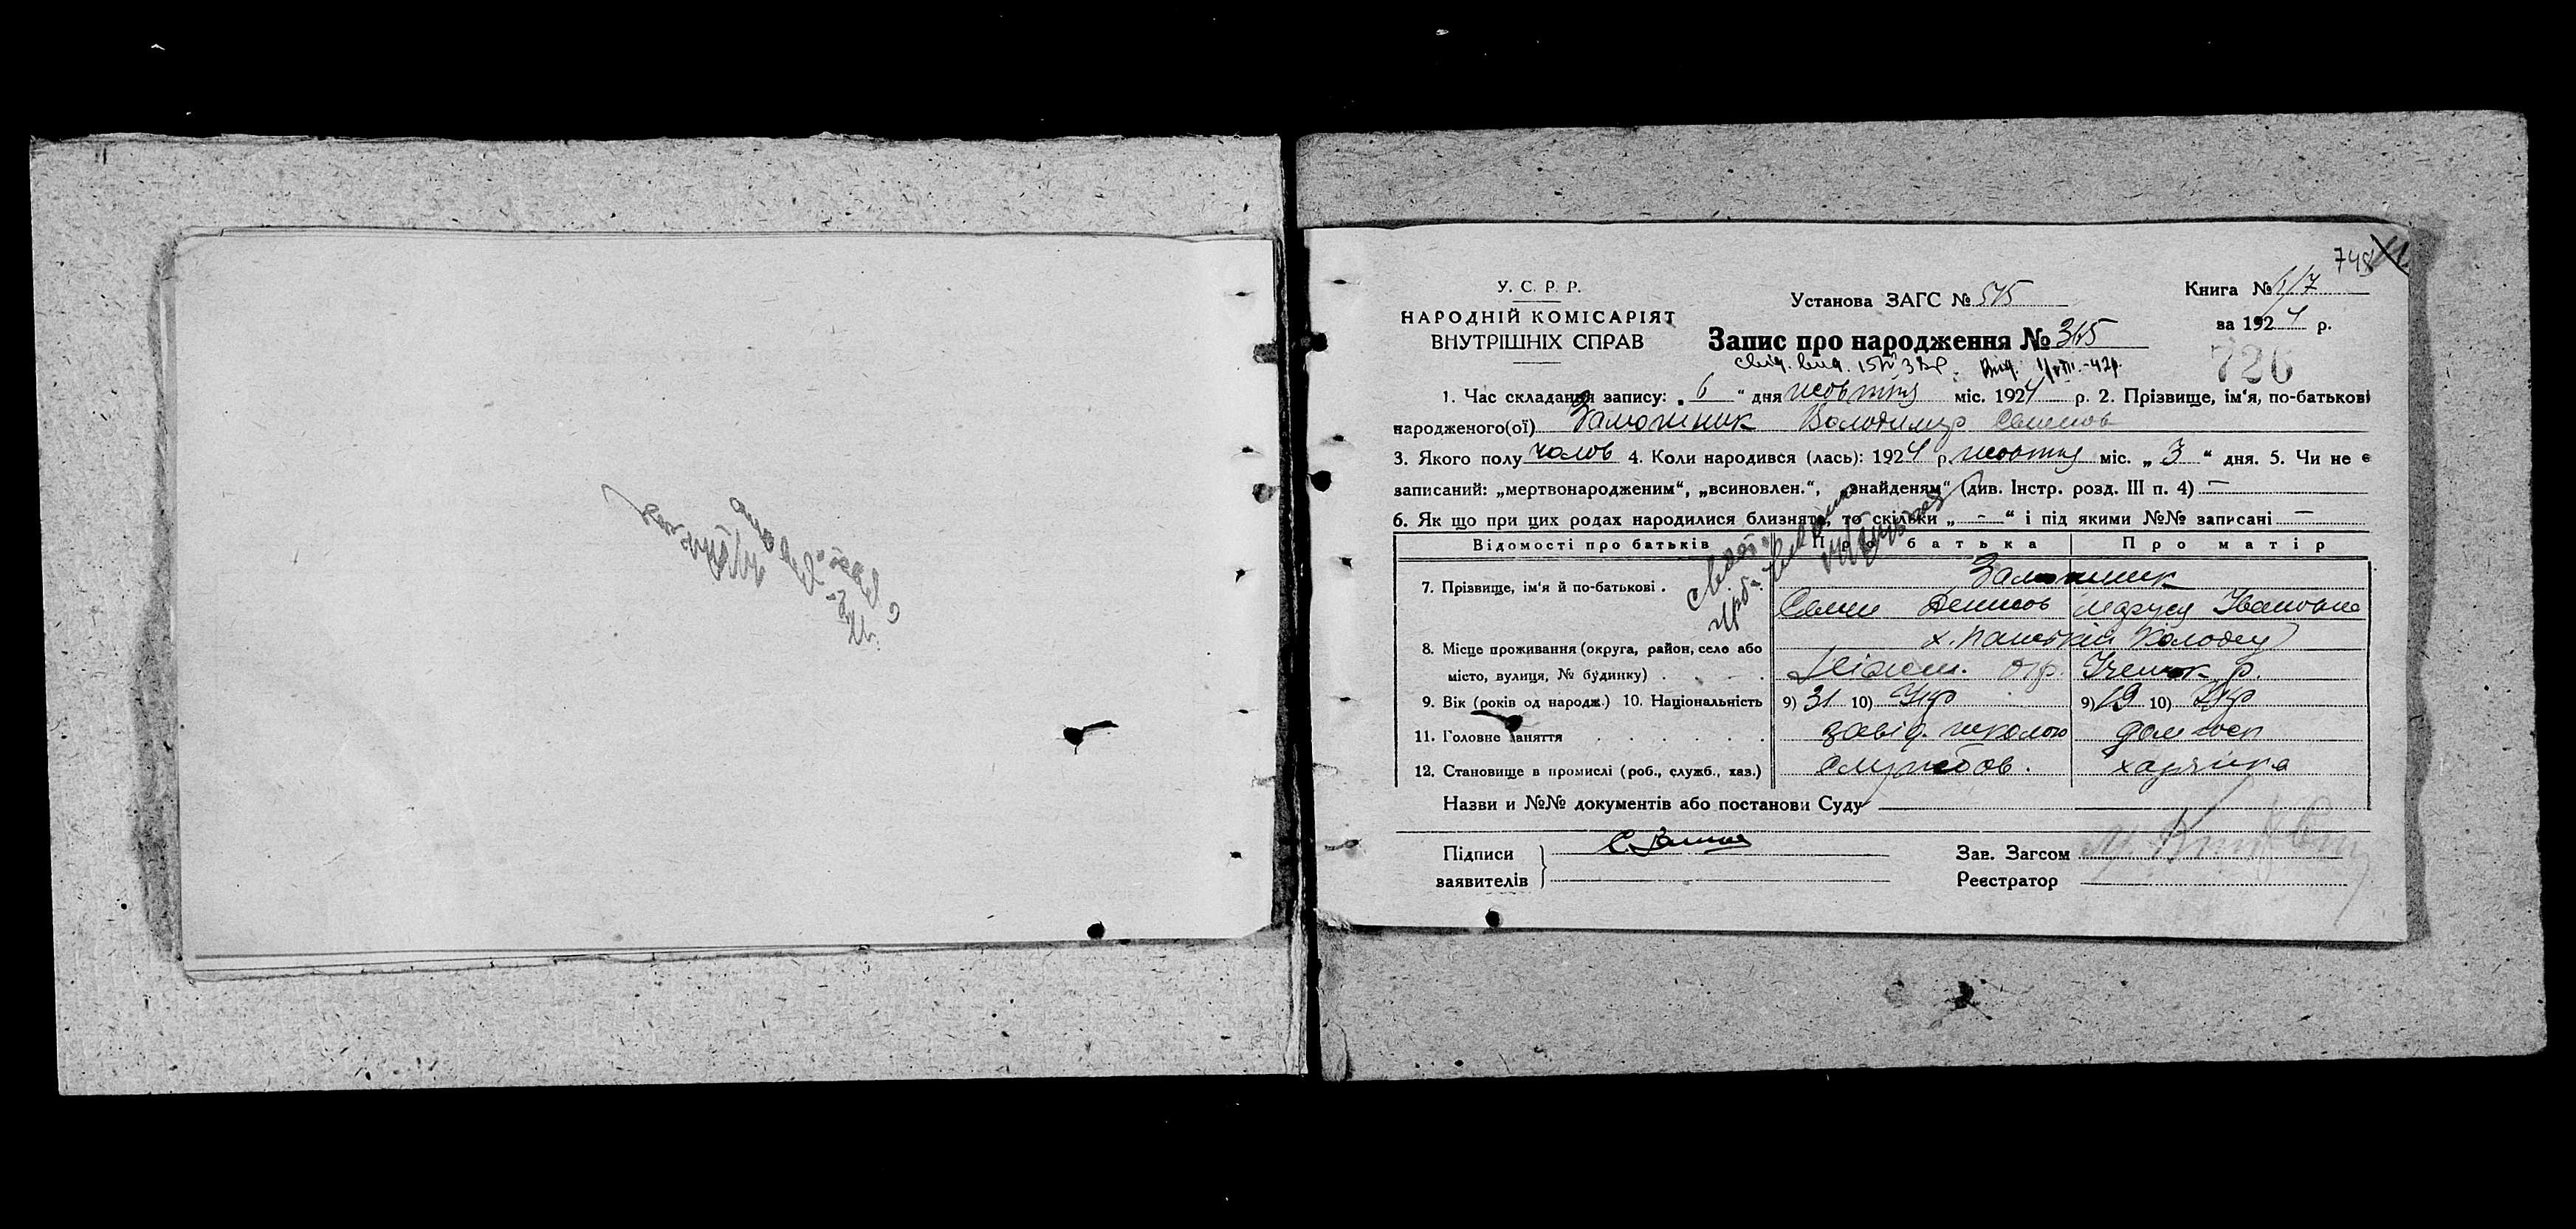 748
У. С. Р. Р.
НАРОДНІЙ КОМІСАРІЯТ
ВНУТРІШНІХ СПРАВ
Установа ЗАГС № 515
Книга №
за 1924 р.
Запис про народження № 315
726
1. Час складання запису: „6“ дня жовтня міс. 1924 р. 2. Прізвище, ім'я, по-батькові
народженого(ої) Заможник Володимир Семенов
3. Якого полу чолов 4. Коли народився (лась): 1924 р. жовтня міс. „3“ дня. 5. Чи не є
записаний: „мертвонародженим“, „всиновлен.“, „знайденям“ (див. Інстр. розд. III п. 4) —
6. Як що при цих родах народилися близнята, то скільки „-“ і під якими №№ записані —
Відомості про батьків Про батька Про матір
7. Прізвище, ім'я й по-батькові . Заможник
Семен Денисов Маруся Івановна
8. Місце проживання (округа, район, село або х. Колодязь
місто, вулиця, № будинку) . окр. р.
9. Вік (років од народж.) 10. Національність 9) 31 10) Укр 9) 19 10) Укр
11. Головне заняття завід. школою дом госп
12. Становище в промислі (роб., служб., хаз.) службов. хазяйка
Назви и №№ документів або постанови Суду
Підписи
заявителів
Зав. Загсом
Реєстратор